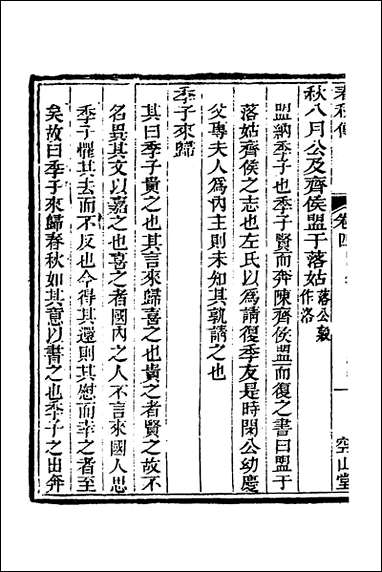 春秋傳 卷四 空山堂
秋八月公及齊侯盟于落姑 落公穀作洛
盟納季子也季子賢而奔陳齊侯盟而復之書曰盟于
落姑齊侯之志也左氏以為請復季友是時閔公幼慶
父專夫人為內主則未知其孰請之也
季子來歸
其曰季子貴之也其言來歸喜之也貴之者賢之故不
名異其文以嘉之也喜之者國內之人不言來國人思
季子懼其去而不反也今得其還則其慰而幸之者至
矣故曰季子來歸春秋如其意以書之也季子之出奔